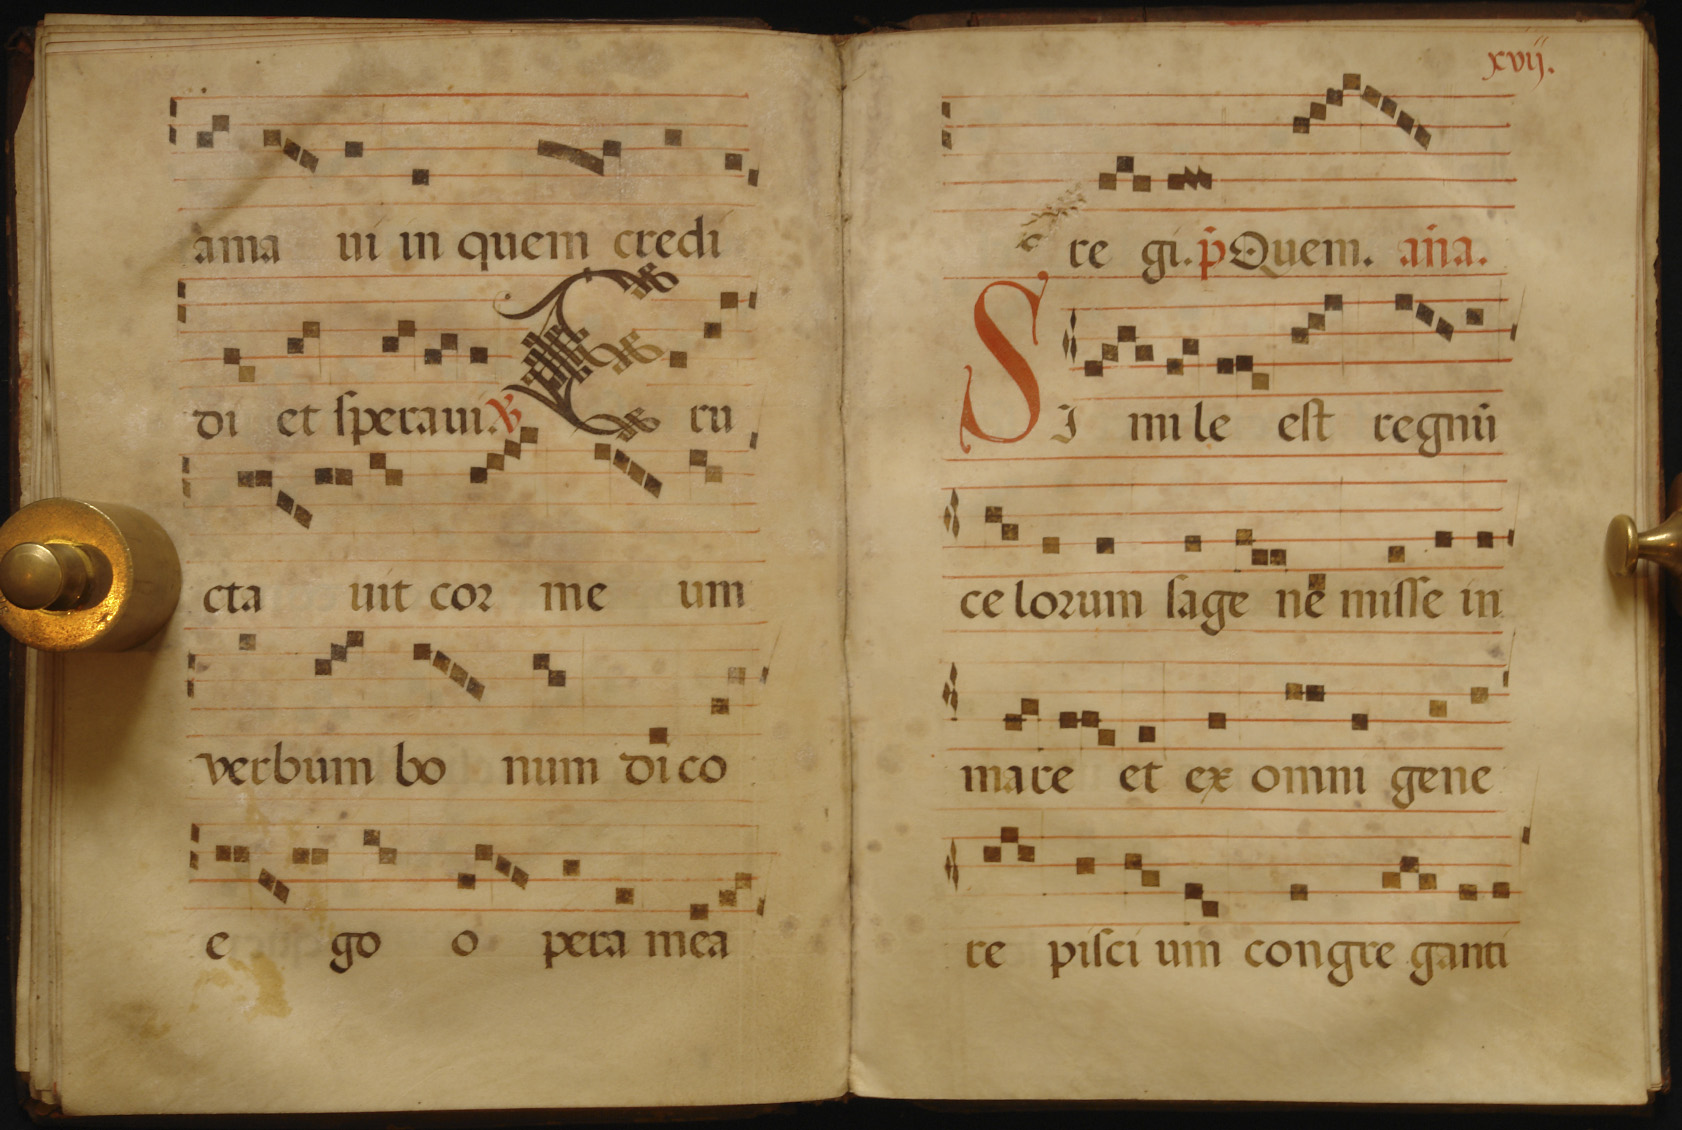 ama ui in quem credi
di et ſperaui. ℣ E ru
cta uit coꝛ me um
verbum bo num dico
e go o pera mea
xvij.
re gi. p̄ Quem. an̄a.
SI mi le eſt regnū
ce loꝛum ſage nē miſſe in
mare et ex omni gene
re piſci um congre ganti